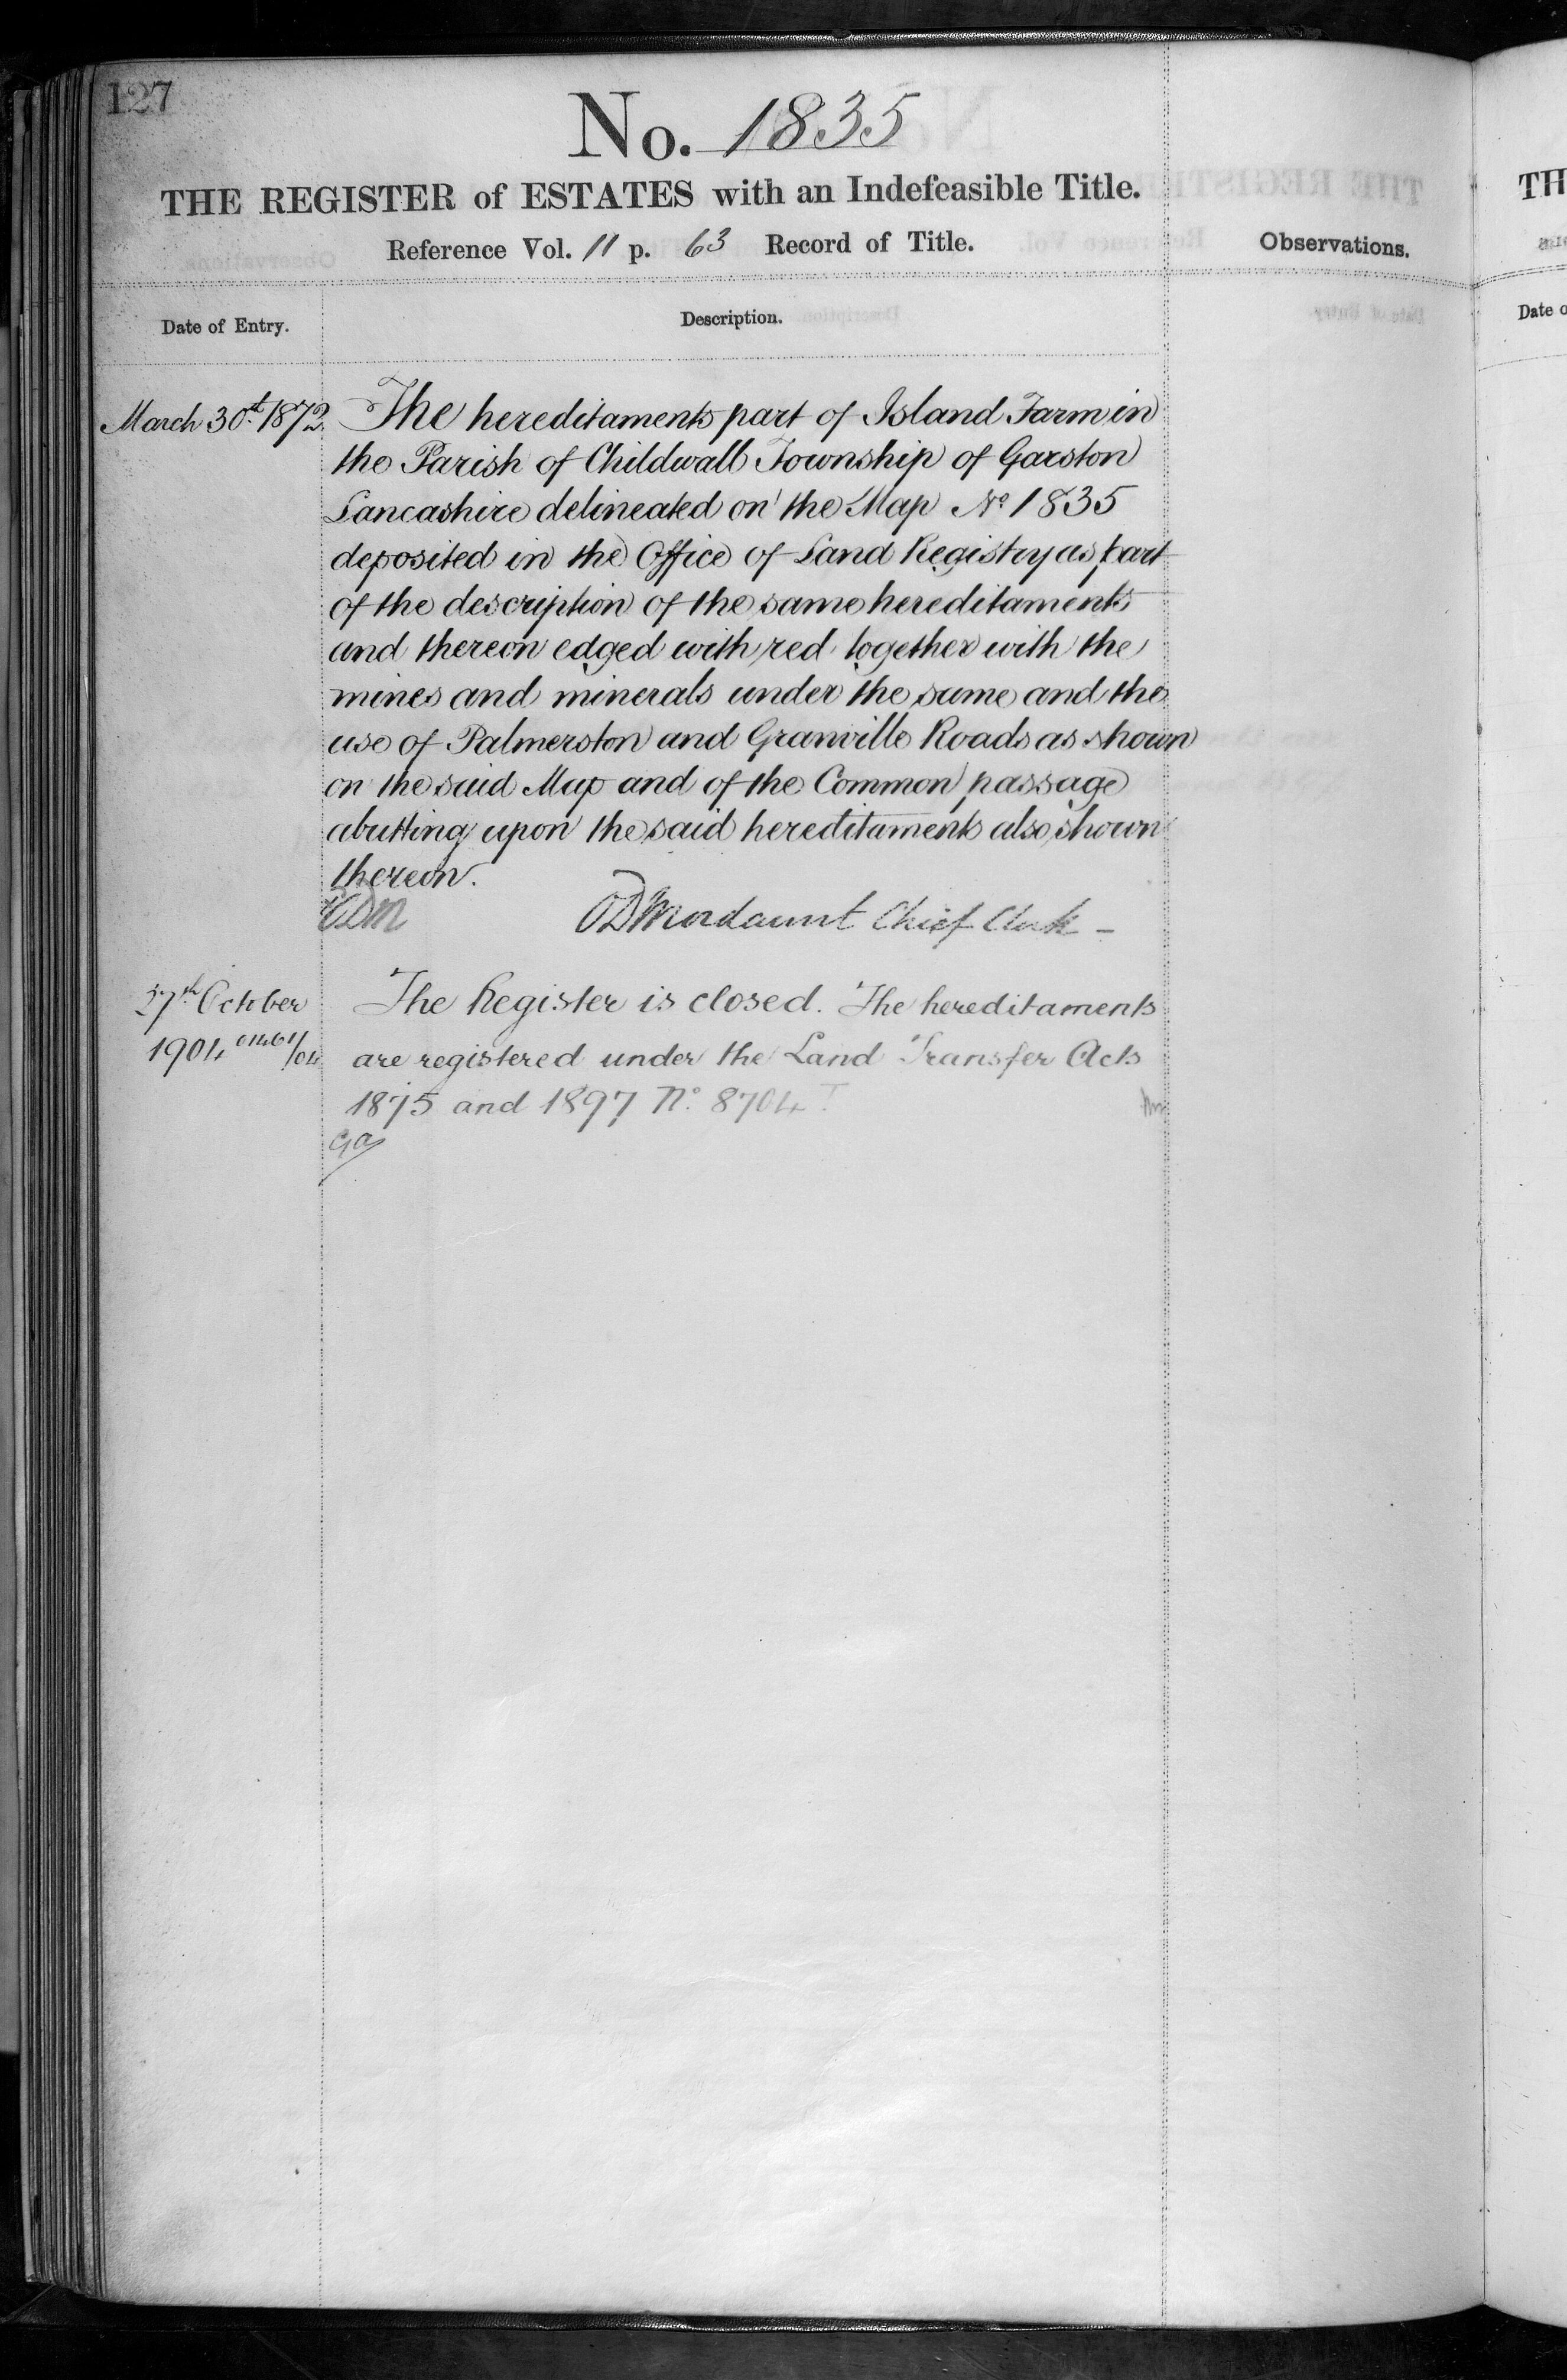 127
No. 1835
THE REGISTER of ESTATES with an Indefeasible Title.
Reference Vol. 11 p. 63 Record of Title.
Observations.
Date of Entry.
Description.
March 30th 1872.
The hereditaments part of Island Farm in
the Parish of Childwall Township of Garston
Lancashire delineated on the Map No 1835
deposited in the Office of Land Registry as part
of the description of the same hereditaments
and thereon edged with red together with the
mines and minerals under the same and the
use of Palmerston and Granville Roads as shown
on the said Map and of the Common passage
abutting upon the said hereditaments also shown
thereon.
Mordaunt Chief Clerk -
October
1904
The Register is closed. The hereditaments
are registered under the Land Transfer Acts
1875 and 1897 No. 8704
TH
Date o